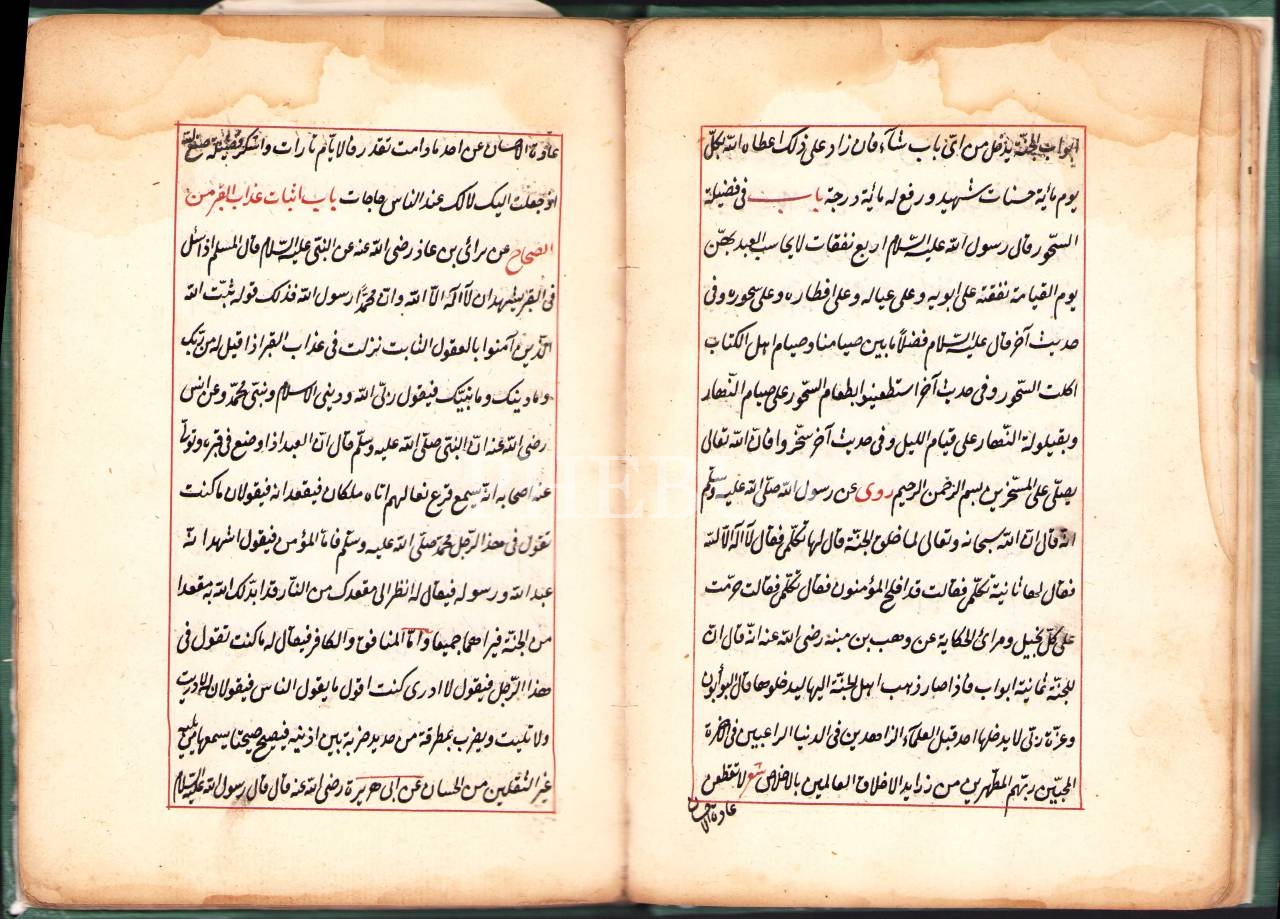 ابواب الجنة يدخل من اىّ باب شآء فان زاد على ذلك اعطاه الله بكلّ
يوم مأية حسنات شهيد ورفع له مأية درجة باب فى فضيلة
السحّور قال رسول الله عليه السّلام اربع نفقات لا يحاسب العبد بهنّ
يوم القيامة نفقته على ابويه وعلى عياله وعلى افطاره وعلى سحوره وفى
حديث آخر قال عليه السّلام فضلاً ما بين صيامنا وصيام اهل الكتاب
اكلت السّحور وفى حديث آخر استطعينوا بطعام السّحور على صيام النّهار
وبقيلولة النّهار على قيام الليل وفى حديث آخر سحّروا فانّ الله تعالى
يصلّى على المسّحرين بسم الرحمن الرحيم روى عن رسول الله صلّى الله عليه وسلّم
انه قال انّ الله سبحانه وتعالى لما خلق الجنّة قال لها تكلّمى فقال لآ اله الّا الله
فقال لها ثانية تكلّمى فقالت قد افلح المؤمنون فقال تكلّمى فقالت حرمت
على كلّ بخيل ومرائ الحكاية عن وهب بن منبه رضى الله عنه انّه قال انّ
للجنّة ثمانية ابواب فاذا صار ذهب اهل الجنّة اليها ليدخلوها قال البوّابون
وعزّة ربّى لا يدخلها احد قبل العلمآء الزاهدين فى الدنيا الراغبين فى الاخرة
المحبّين ربّهم المطهّرين من زايد الاخلاق العالمين بالاخلاص شعر لا تقطعن
عادة الاحسان
عادة الاحسان عن احد ما دامت تقدر فالايّام تارات واشكر فضيلة صنع الله
اذ جعلت اليك لا لك عند الناس حاجات باب اثبات عذاب القبر من
الصّحاح عن برائ بن عاذر رضى الله عنه عن النبىّ عليه السّلام قال المسلم اذا سئل
فى القبر يشهد ان لآ اله الّا الله وانّ محمّدًا رسول الله فذلك قوله يثبّت الله
الّذين آمنوا بالقول الثابت نزلت فى عذاب القبر اذا قيل له من ربّك
وما دينك وما نبيّك فيقول ربّى الله ودينى الاسلام ونبيّى محمّد وعن انس
رضى الله عنه انّ النبىّ صلّى الله عليه وسلّم قال انّ العبد اذا وضع فى قبره وتولّى
عنه اصحابه انّه يسمع قرع نعالهم اتاه ملكان فيقعدانه فيقولان ما كنت
تقول فى هذا الرّجل محمّد صلّى الله عليه وسلّم فامّا المؤمن فيقول اشهد انّه
عبد الله ورسوله فيقال له انظر الى مقعدك من النّار قد ابدلك الله به مقعدا
من الجنّة فيراهما جميعا وامّا المنافق والكافر فيقال له ما كنت تقول فى
هذا الرّجل فيقول لا ادرى كنت اقول ما يقول الناس فيقولان لا دريت
ولا تليت ويضرب بمطرقة من حديد ضربة بين اذنيه فيصيح صيحتا يسمعها من يليه
غير الثّقلين من الحسان عن ابى هريرة رضى الله عنه قال قال رسول الله عليه السّلام